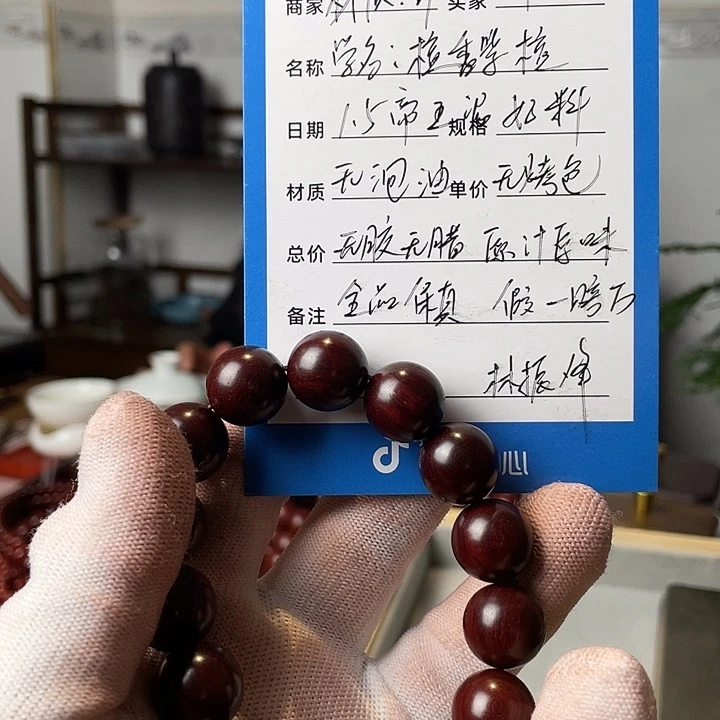 商家 买家
名称 学名：檀香紫檀
日期 1.5帝王 规格 好料
材质 无泡油 单价 无烤色
总价 无胶无腊 原汁原味
备注 全品保真 假一赔万
林振烽
心